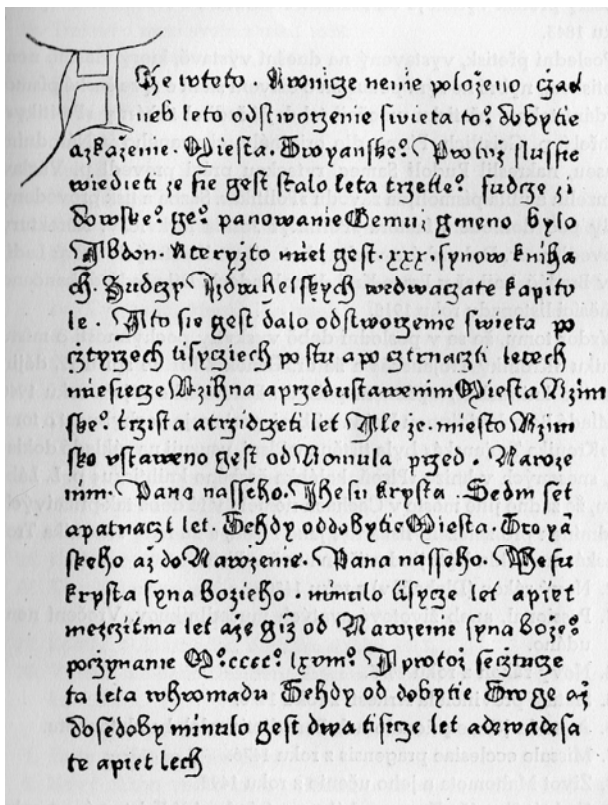 A že wtoto · kronicze nenie położeno czad
neb leto odstworzenie swieta to° dobytie
a zkaženie · Miesta · Troyanske° · Protož slussie
wiedieti že sie gest stalo leta trzetie° sudcze ži
dowske° ge° panowanie Gemu gmeno bylo
Abdon · kteryžto miel gest · xxx · synow kniha
ch · Sudczy Izdrahelskych wedwanczate kapito
le · A to sie gest dalo odstworzenie swieta po
cztyrzech tisyciech po stu a po cztrnaczti letech
miesiecze Brzezna aprzedustawenim Miesta Rzim
ske° trzista atrzidczeti let Ale že · miesto Rzim
sko vstaweno gest od Romula przed · Naroze
nim · Pana nasseho · Jhesu krysta · Sedm set
apatnaczt let · Tehdy oddobytie Miesta · Troya
skeho až do Narozenie · Pana nasseho · Jhesu
krysta syna bozieho · minulo tisycze let apiet
mezczitma let aže giž od Narozenie syna božie°
poczynanie M°cccc° lxviii° A protož secztucze
ta leta whromadu Tehdy od dobytie Troge až
dosedoby minulo gest dwa tisicze let adewadesa
te apiet lech